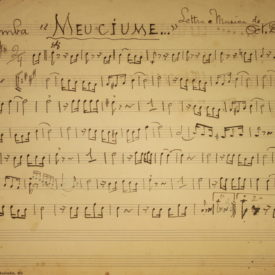 mba "MEU CIUME..." Lettra e Musica de